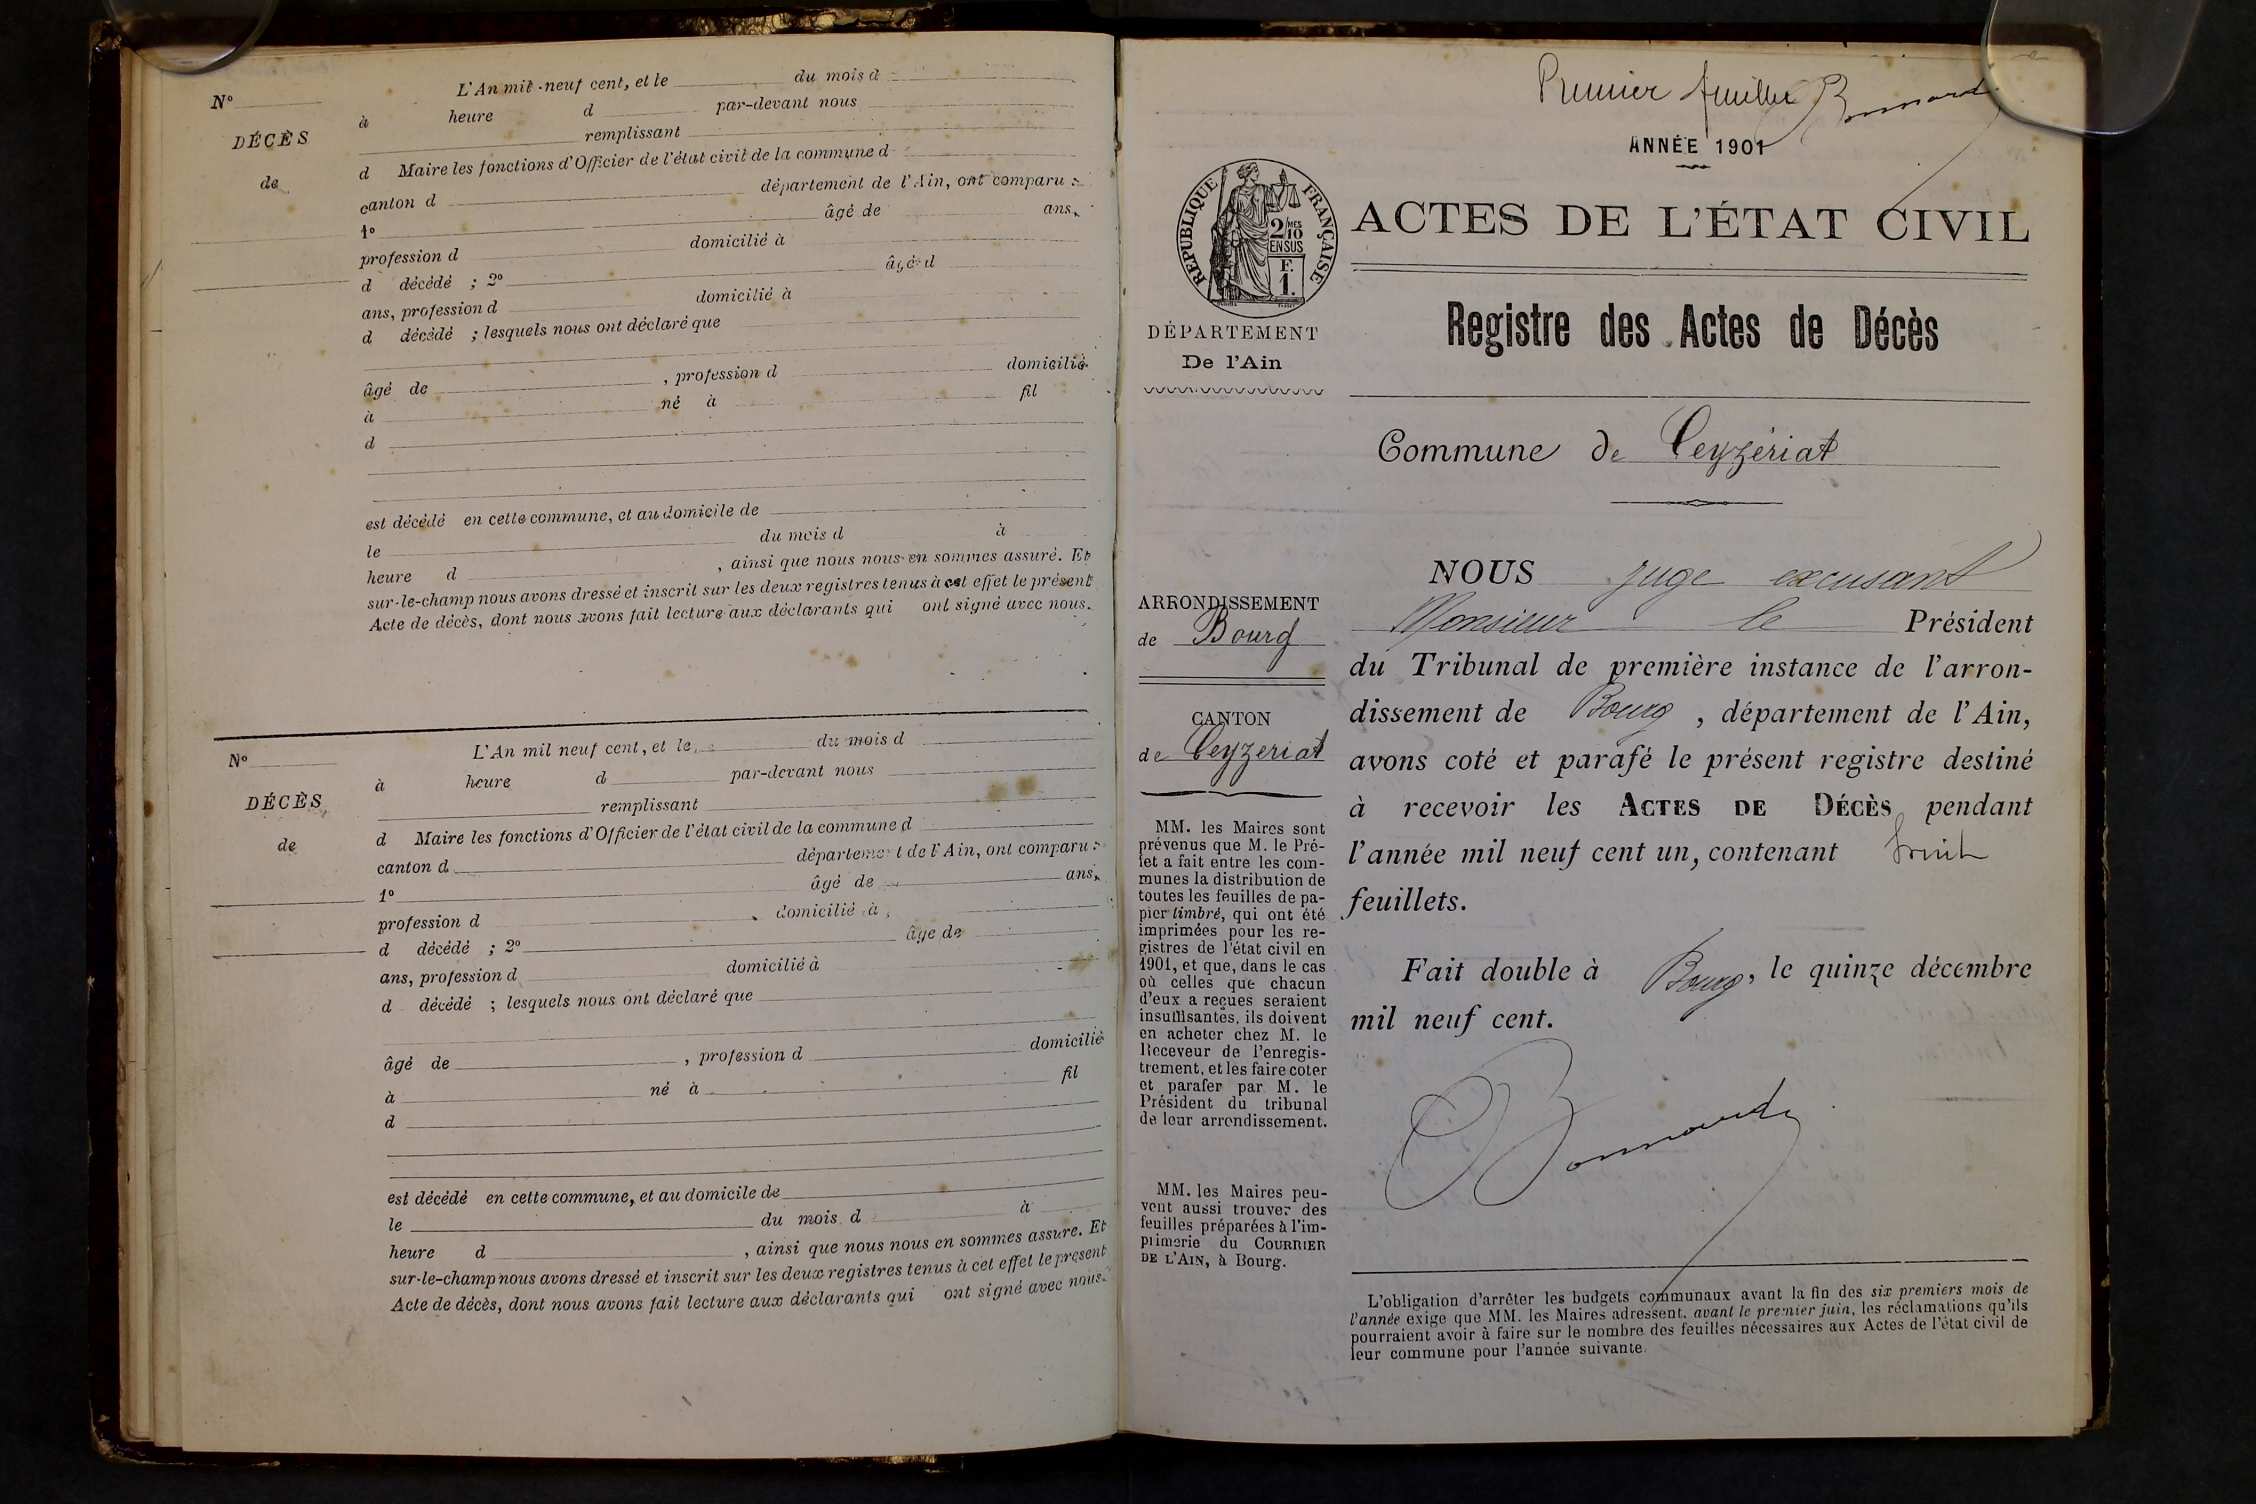 N°
DÉCÈS
de
L'An mil neuf cent, et le du mois d
à heure d par-devant nous
remplissant
d Maire les fonctions d'Officier de l'état civil de la commune d
canton d département de l'Ain, ont comparu :
1° âgé de ans,
profession d domicilié à
d décédé ; 2° âgé d
ans, profession d domicilié à
d décédé ; lesquels nous ont déclaré que
âgé de , profession d domicilié
à né à fil
d
est décédé en cette commune, et au domicile de
le du mois d à
heure d , ainsi que nous nous en sommes assuré. Et
sur-le-champ nous avons dressé et inscrit sur les deux registres tenus à cet effet le présent
Acte de décès, dont nous avons fait lecture aux déclarants qui ont signé avec nous.
N°
DÉCÈS
de
L'An mil neuf cent, et le du mois d
à heure d par-devant nous
remplissant
d Maire les fonctions d'Officier de l'état civil de la commune d
canton d département de l'Ain, ont comparu :
1° âgé de ans,
profession d domicilié à
d décédé ; 2° âge de
ans, profession d domicilié à
d décédé ; lesquels nous ont déclaré que
âgé de , profession d domicilié
à né à fil
d
est décédé en cette commune, et au domicile de
le du mois d à
heure d , ainsi que nous nous en sommes assure. Et
sur-le-champ nous avons dressé et inscrit sur les deux registres tenus à cet effet le présent
Acte de décès, dont nous avons fait lecture aux déclarants qui ont signé avec nous.
Premier feuillet Bonnard
ANNÉE 1901
RÉPUBLIQUE FRANÇAISE
2/10 MES
EN SUS
F.
1.
DÉPARTEMENT
De l'Ain
ARRONDISSEMENT
de Bourg
CANTON
de Ceyzeriat
MM. les Maires sont
prévenus que M. le Pré-
fet a fait entre les com-
munes la distribution de
toutes les feuilles de pa-
pier timbré, qui ont été
imprimées pour les re-
gistres de l'état civil en
1901, et que, dans le cas
où celles que chacun
d'eux a reçues seraient
insuffisantes, ils doivent
en acheter chez M. le
Receveur de l'enregis-
trement, et les faire coter
et parafer par M. le
Président du tribunal
de leur arrondissement.
MM. les Maires peu-
vent aussi trouver des
feuilles préparées à l'im-
primerie du COURRIER
DE L'AIN, à Bourg.
ACTES DE L'ÉTAT CIVIL
Registre des Actes de Décès
Commune de Ceyzériat
NOUS juge excusant
Monsieur le Président
du Tribunal de première instance de l'arron-
dissement de Bourg , département de l'Ain,
avons coté et parafé le présent registre destiné
à recevoir les ACTES DE DÉCÈS pendant
l'année mil neuf cent un, contenant
feuillets.
Fait double à Bourg, le quinze décembre
mil neuf cent.
Bonnard
L'obligation d'arrêter les budgets communaux avant la fin des six premiers mois de
l'année exige que MM. les Maires adressent, avant le premier juin, les réclamations qu'ils
pourraient avoir à faire sur le nombre des feuilles nécessaires aux Actes de l'état civil de
leur commune pour l'année suivante.